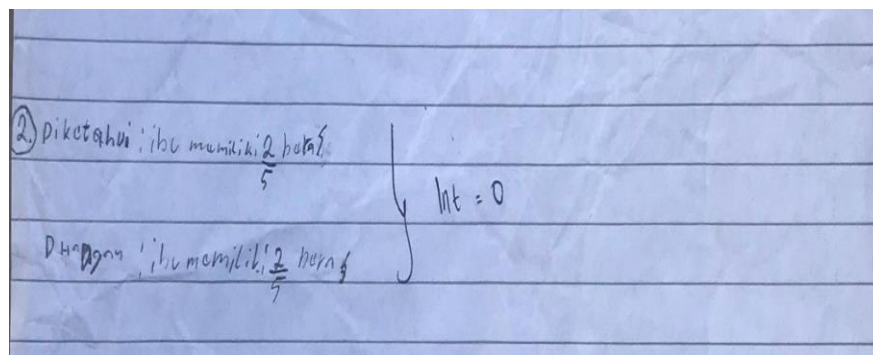 2. Diketahui : ibu memiliki 2/5 beras
Int = 0
: ibu memiliki 2/5 beras